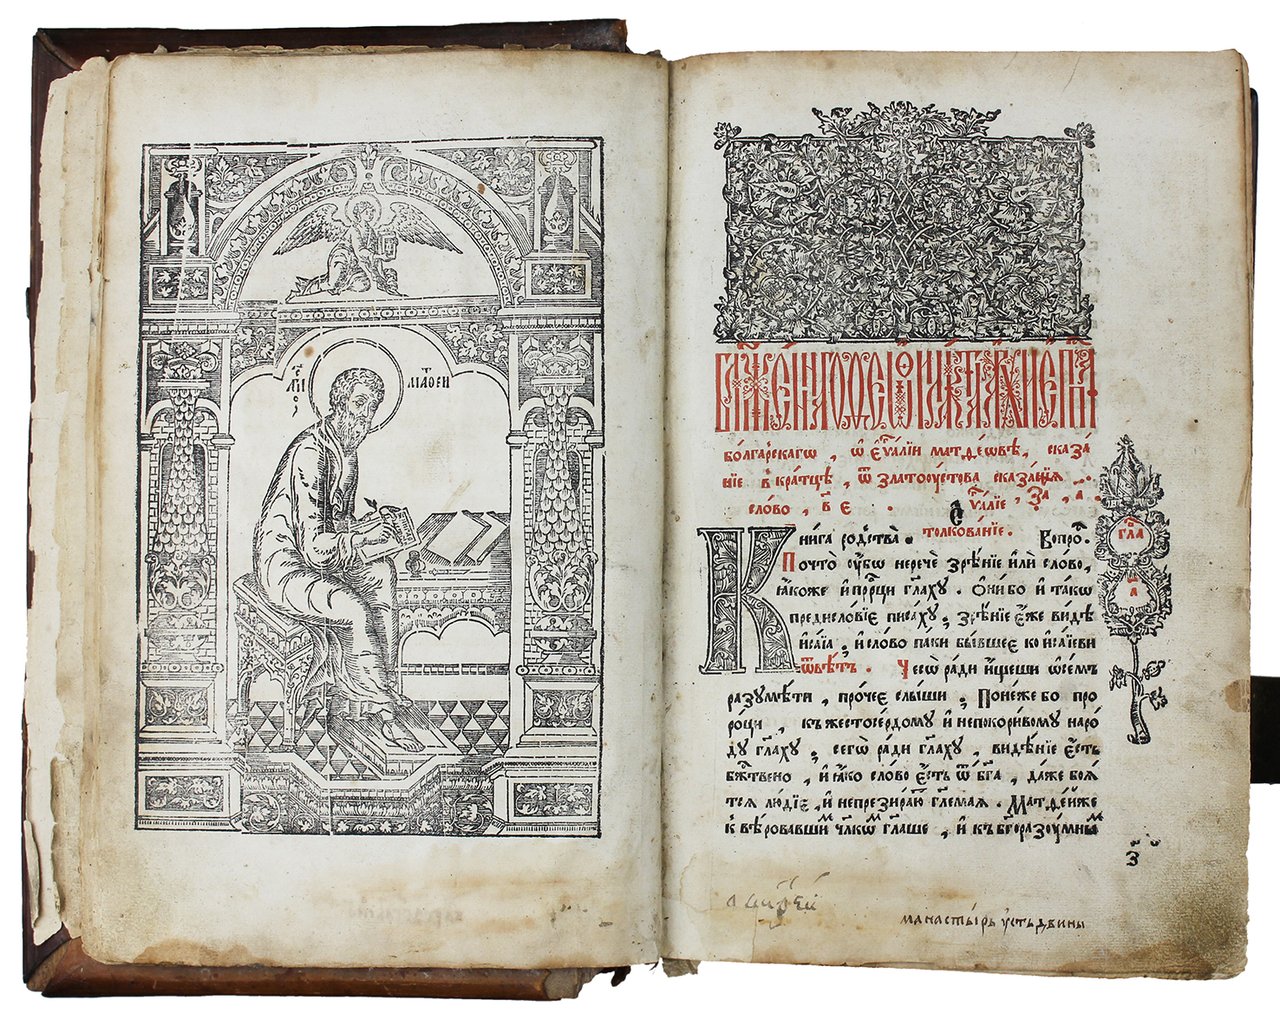 ѻ҆ а҆́гїос матѳеи
бл҃же́ннагѡ ѳеѻфила́кта а҆рхїепⷭ҇кпа
болга́рскагѡ, ѡ҆ є҆ѵⷢ҇алїи матѳе́овѣ, сказа́
нїе в кра́тцѣ, ѿ златоꙋ́стова сказа́нїѧ
сло́во, в҃ є
Є҆ѵⷢ҇алїе, за, а҃.
Кни́га родства̀. толкова́нїе. Вопро́.
Почто̀ ᲂу҆́бѡ неречѐ зрѣ́нїе и҆лѝ сло́во,
ꙗ҆́коже и҆ прⷪ҇рцы гл҃аху. Ѻ҆ни́ бо и҆ та́кѡ
предисло́вїе писа́ху. зрѣ́нїе є҆́же ви́дѣ
и҆са́їа, и҆ сло́во па́ки бы́вшее ко и҆са́їеви
ѿвѣ́тъ. Чесѡ̀ ра́ди и҆́щеши ѡ҆ се́мъ
разꙋмѣ́ти, про́чее слы́ши, Поне́же бо про
ро́цы, къ жестосе́рдомꙋ и҆ непокори́вомꙋ наро́
дꙋ гл҃ахꙋ, сегѡ̀ ра́ди гл҃ахꙋ, видѣ́нїе є҆́сть
бжⷭ҇твено, и҆ ꙗ҆́ко сло́во є҆́сть ѿ бг҃а, да́же боѧ́
тсѧ лю́дїе, и҆ непрезира́ютъ гл҃емаѧ. Матѳе́й же
к вѣ́ровавшимъ чл҃кѡмъ гл҃аше, и҆ къ бл҃горазꙋ́мнымъ
гла҃
а҃
з҃
манасты́рь ᲂу҆стьдвины